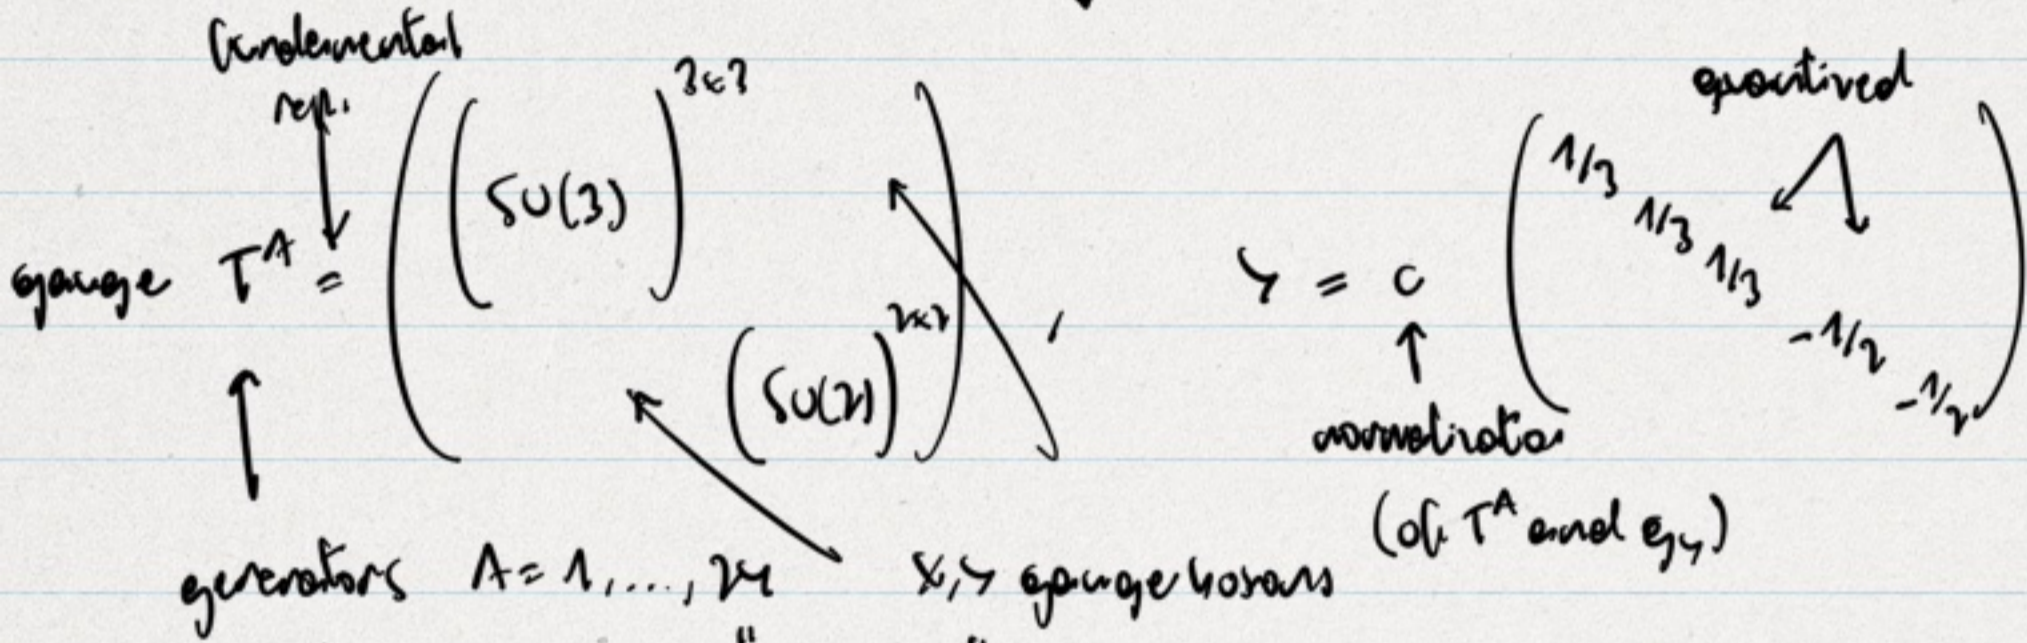 fundamental
repl.
gauge T^A = ( (SU(3))^{3×3} (SU(2))^{2×2} ) ,
generators A = 1, ..., 24
X, Y gauge bosons
quantized
Y = c ( 1/3 1/3 1/3 -1/2 -1/2 )
(of T^A and g_Y)